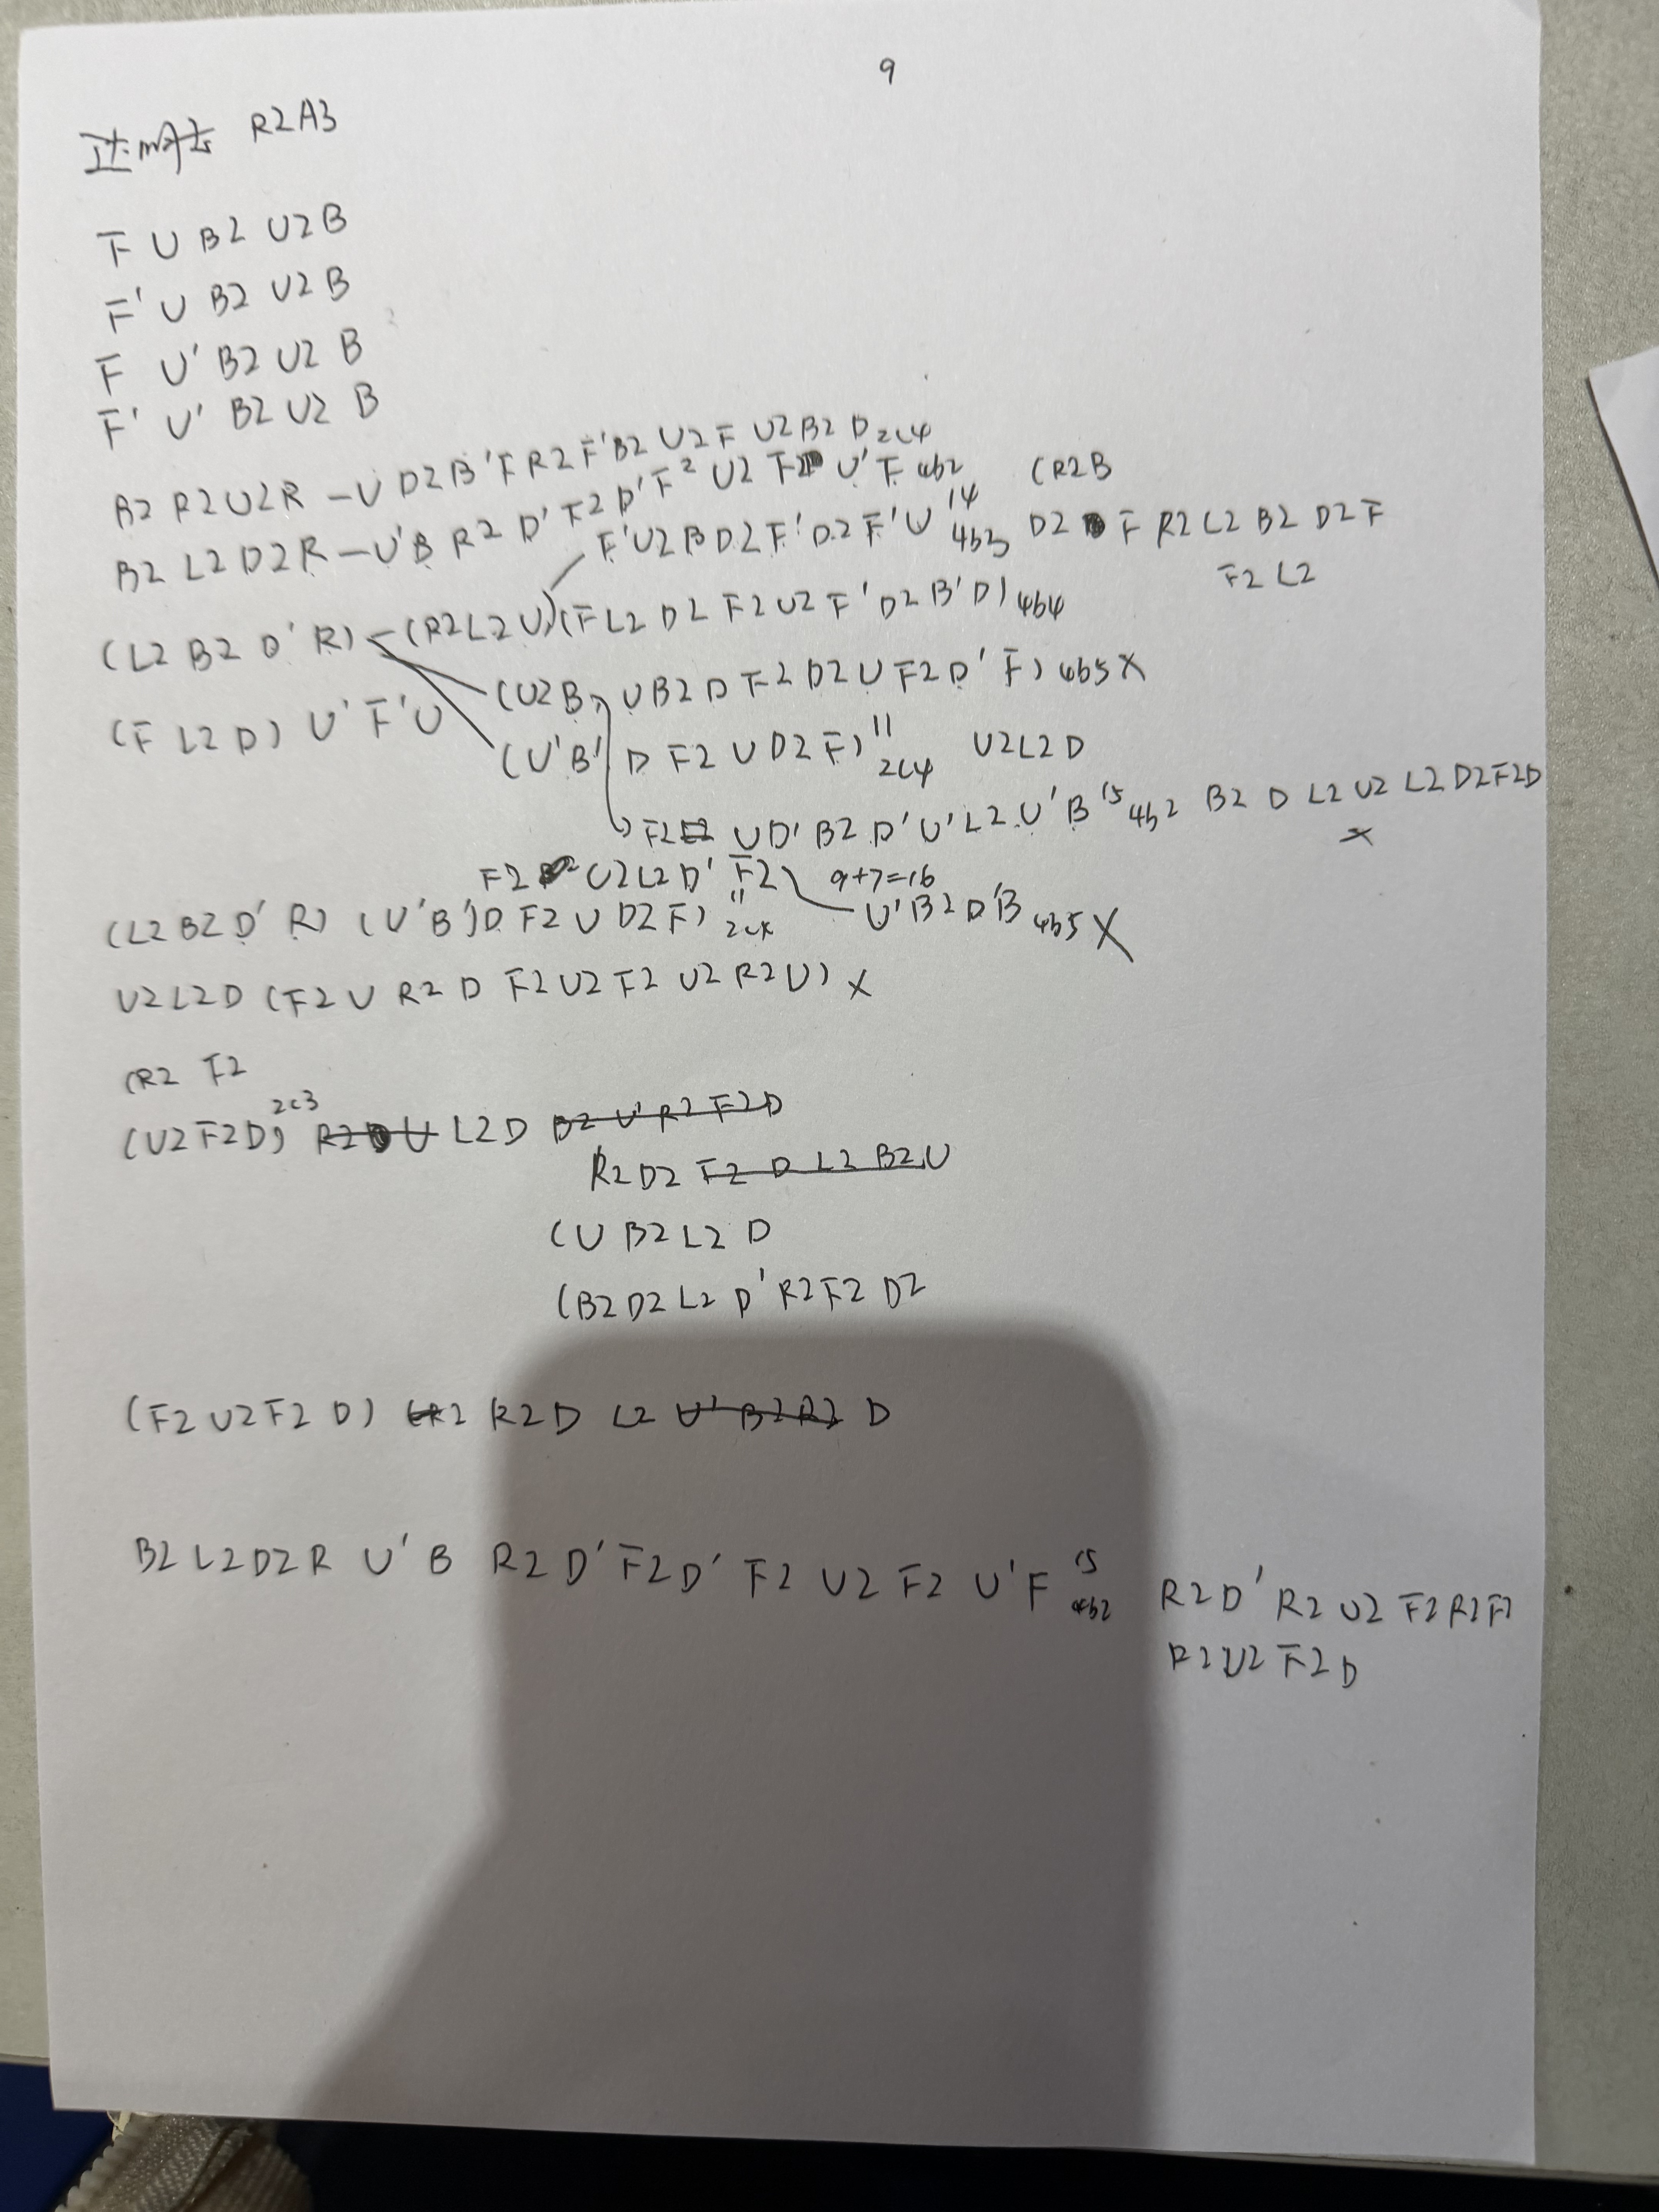 9
R2A3
F U B2 U2 B
F' U B2 U2 B
F U' B2 U2 B
F' U' B2 U2 B
B2 R2 U2 R - U D2 B' F R2 F' B2 U2 F U2 B2 D 2c4
B2 L2 D2 R - U' B R2 D' F2 D' F2 U2 F2 U' F 4b2 (R2 B
F' U2 B D2 F' D2 F' U 14 4b3 D2 F R2 L2 B2 D2 F
F2 L2
(L2 B2 D' R) - (R2 L2 U) (F L2 D2 F2 U2 F' D2 B' D) 4b4
(U2 B, U B2 D F2 D2 U F2 D' F) 4b5 X
(F L2 D) U' F' U
(U' B' D F2 U D2 F) 11 2c4 U2 L2 D
F2 U D' B2 D' U' L2 U' B 15 4b2 B2 D L2 U2 L2 D2 F2 D X
F2 U2 L2 D' F2 9+7=16
(L2 B2 D' R) (U' B') D F2 U D2 F) 11 U' B2 D' B 4b5 X
U2 L2 D (F2 U R2 D F2 U2 F2 U2 R2 U) X
(R2 F2
(U2 F2 D) 2c3 R2 U L2 D B2 U' R2 F2 D
R2 D2 F2 D L2 B2 U
(U B2 L2 D
(B2 D2 L2 D' R2 F2 D2
(F2 U2 F2 D) R2 D L2 U' B2 R2 D
B2 L2 D2 R U' B R2 D' F2 D' F2 U2 F2 U' F 15 4b2 R2 D' R2 U2 F2 R2 F2
R2 U2 F2 D